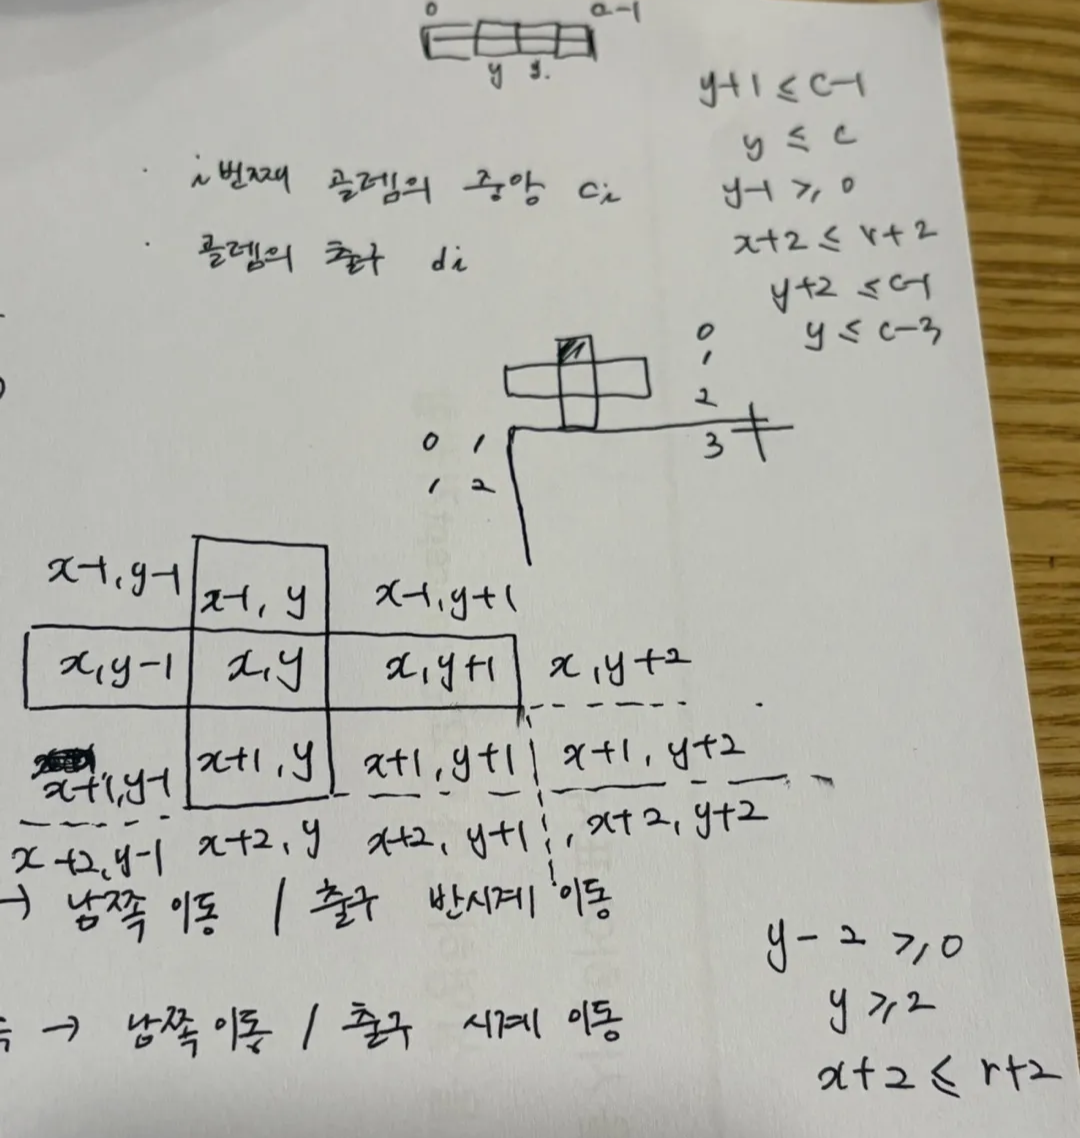 0 a-1
y y.
y+1 ≤ c-1
y ≤ c
· i번째 골렘의 중앙 ci
y-1 ≥ 0
x+2 ≤ r+2
· 골렘의 출구 di
y+2 ≤ c-1
y ≤ c-3
0
1
2
3
0 1
1 2
x-1, y-1 x-1, y x-1, y+1
x, y-1 x, y x, y+1 x, y+2
x+1, y-1 x+1, y x+1, y+1 x+1, y+2
x+2, y-1 x+2, y x+2, y+1 x+2, y+2
→ 남쪽 이동 / 출구 반시계 이동
y-2 ≥ 0
y ≥ 2
→ 남쪽 이동 / 출구 시계 이동
x+2 ≤ r+2